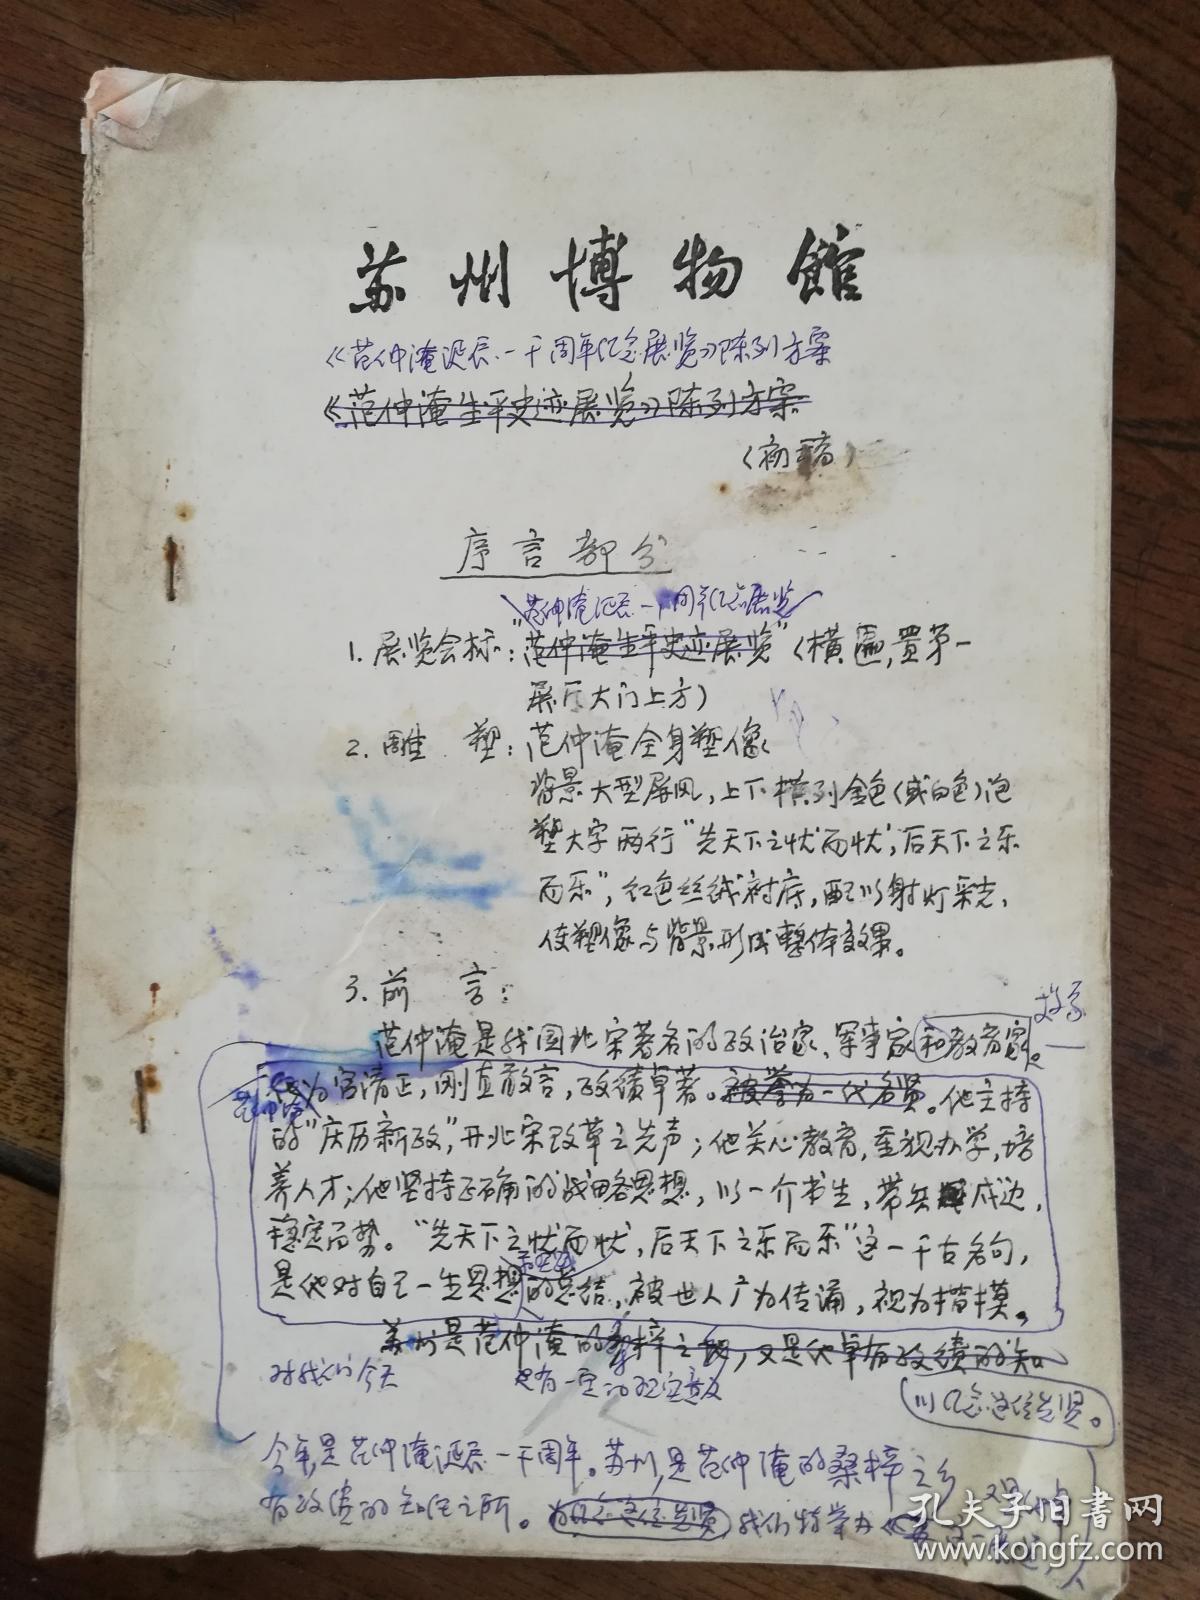 苏州博物館
《范仲淹诞辰一千周年纪念展览》陈列方案
《范仲淹生平史迹展览》陈列方案
(初稿)
序言部分
范仲淹诞辰一千周年纪念展览
1.展览会标:"范仲淹生平史迹展览"(横匾,置第一
展厅大门上方)
2.雕 塑:范仲淹全身塑像
背景大型屏风,上下横列金色(或白色)泡
塑大字两行"先天下之忧而忧,后天下之乐
而乐",红色丝绒衬底,配以射灯采光,
使塑像与背景形成整体效果。
3.前 言:
范仲淹是我国北宋著名的政治家、军事家和教育家。
为官清正,刚直敢言,政绩卓著。被誉为一代名贤。他主持
范仲淹
的"庆历新政",开北宋改革之先声;他关心教育,重视办学,培
养人才;他坚持正确的战略思想,以一介书生,带兵戍边,
稳定局势。"先天下之忧而忧,后天下之乐而乐"这一千古名句,
是他对自己一生思想的总结,被世人广为传诵,视为楷模。
苏州是范仲淹的桑梓之地,又是他卓有政绩的知
对我们今天 也有一定的现实意义
以纪念这位先贤。
今年是范仲淹诞辰一千周年。苏州是范仲淹的桑梓之乡 又是他卓
有政绩的知任之所。为纪念这位先贤 我们特举办《
孔夫子旧书网
www.kongfz.com